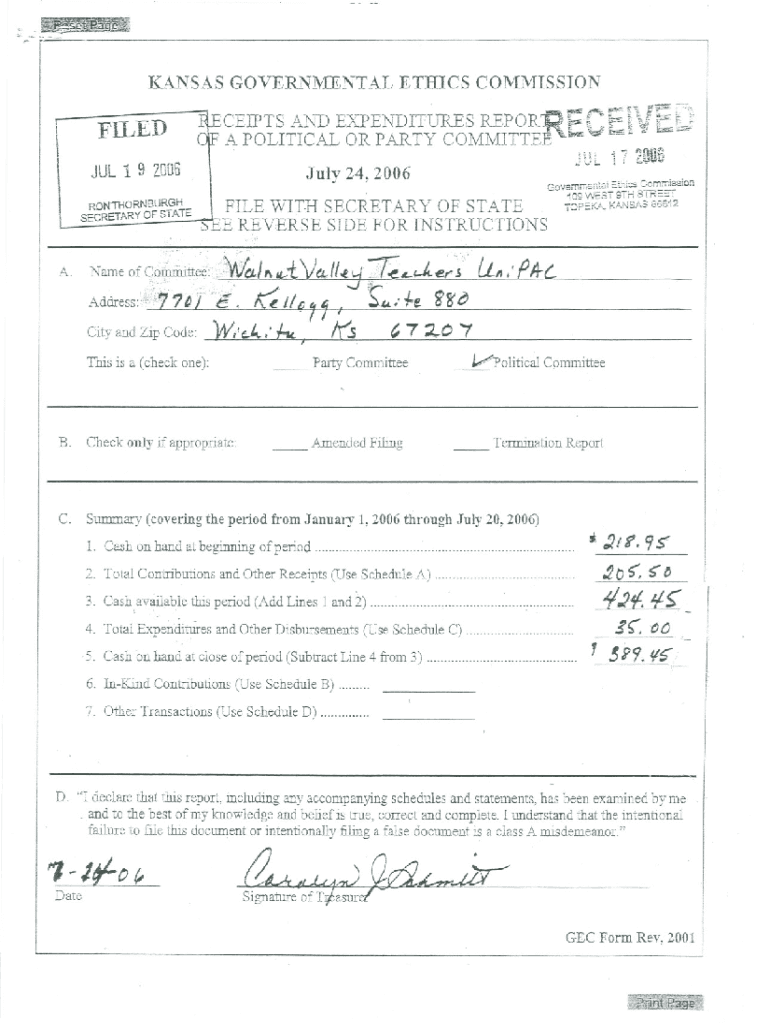 Reset Page
KANSAS GOVERNMENTAL ETHICS COMMISSION
FILED
JUL 19 2006
RON THORNBURGH
SECRETARY OF STATE
RECEIPTS AND EXPENDITURES REPORT
OF A POLITICAL OR PARTY COMMITTEE
July 24, 2006
FILE WITH SECRETARY OF STATE
SEE REVERSE SIDE FOR INSTRUCTIONS
RECEIVED
JUL 17 2006
Governmental Ethics Commission
109 WEST 9TH STREET
TOPEKA, KANSAS 66612
A. Name of Committee: Walnut Valley Teachers UniPAC
Address: 7701 E. Kellogg, Suite 880
City and Zip Code: Wichita, Ks 67207
This is a (check one): ____ Party Committee ✓ Political Committee
B. Check only if appropriate: ____ Amended Filing ____ Termination Report
C. Summary (covering the period from January 1, 2006 through July 20, 2006)
1. Cash on hand at beginning of period ........ $ 218.95
2. Total Contributions and Other Receipts (Use Schedule A) ........ 205.50
3. Cash available this period (Add Lines 1 and 2) ........ 424.45
4. Total Expenditures and Other Disbursements (Use Schedule C) ........ 35.00
5. Cash on hand at close of period (Subtract Line 4 from 3) ........ $ 389.45
6. In-Kind Contributions (Use Schedule B) .........
7. Other Transactions (Use Schedule D) ..............
D. "I declare that this report, including any accompanying schedules and statements, has been examined by me
and to the best of my knowledge and belief is true, correct and complete. I understand that the intentional
failure to file this document or intentionally filing a false document is a class A misdemeanor."
Carolyn J Schmitt
Date Signature of Treasurer
GEC Form Rev, 2001
Print Page